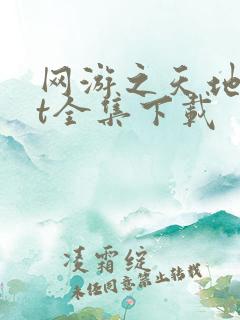 网游之天地
t全集下载
凌霜绽
未经同意禁止转载